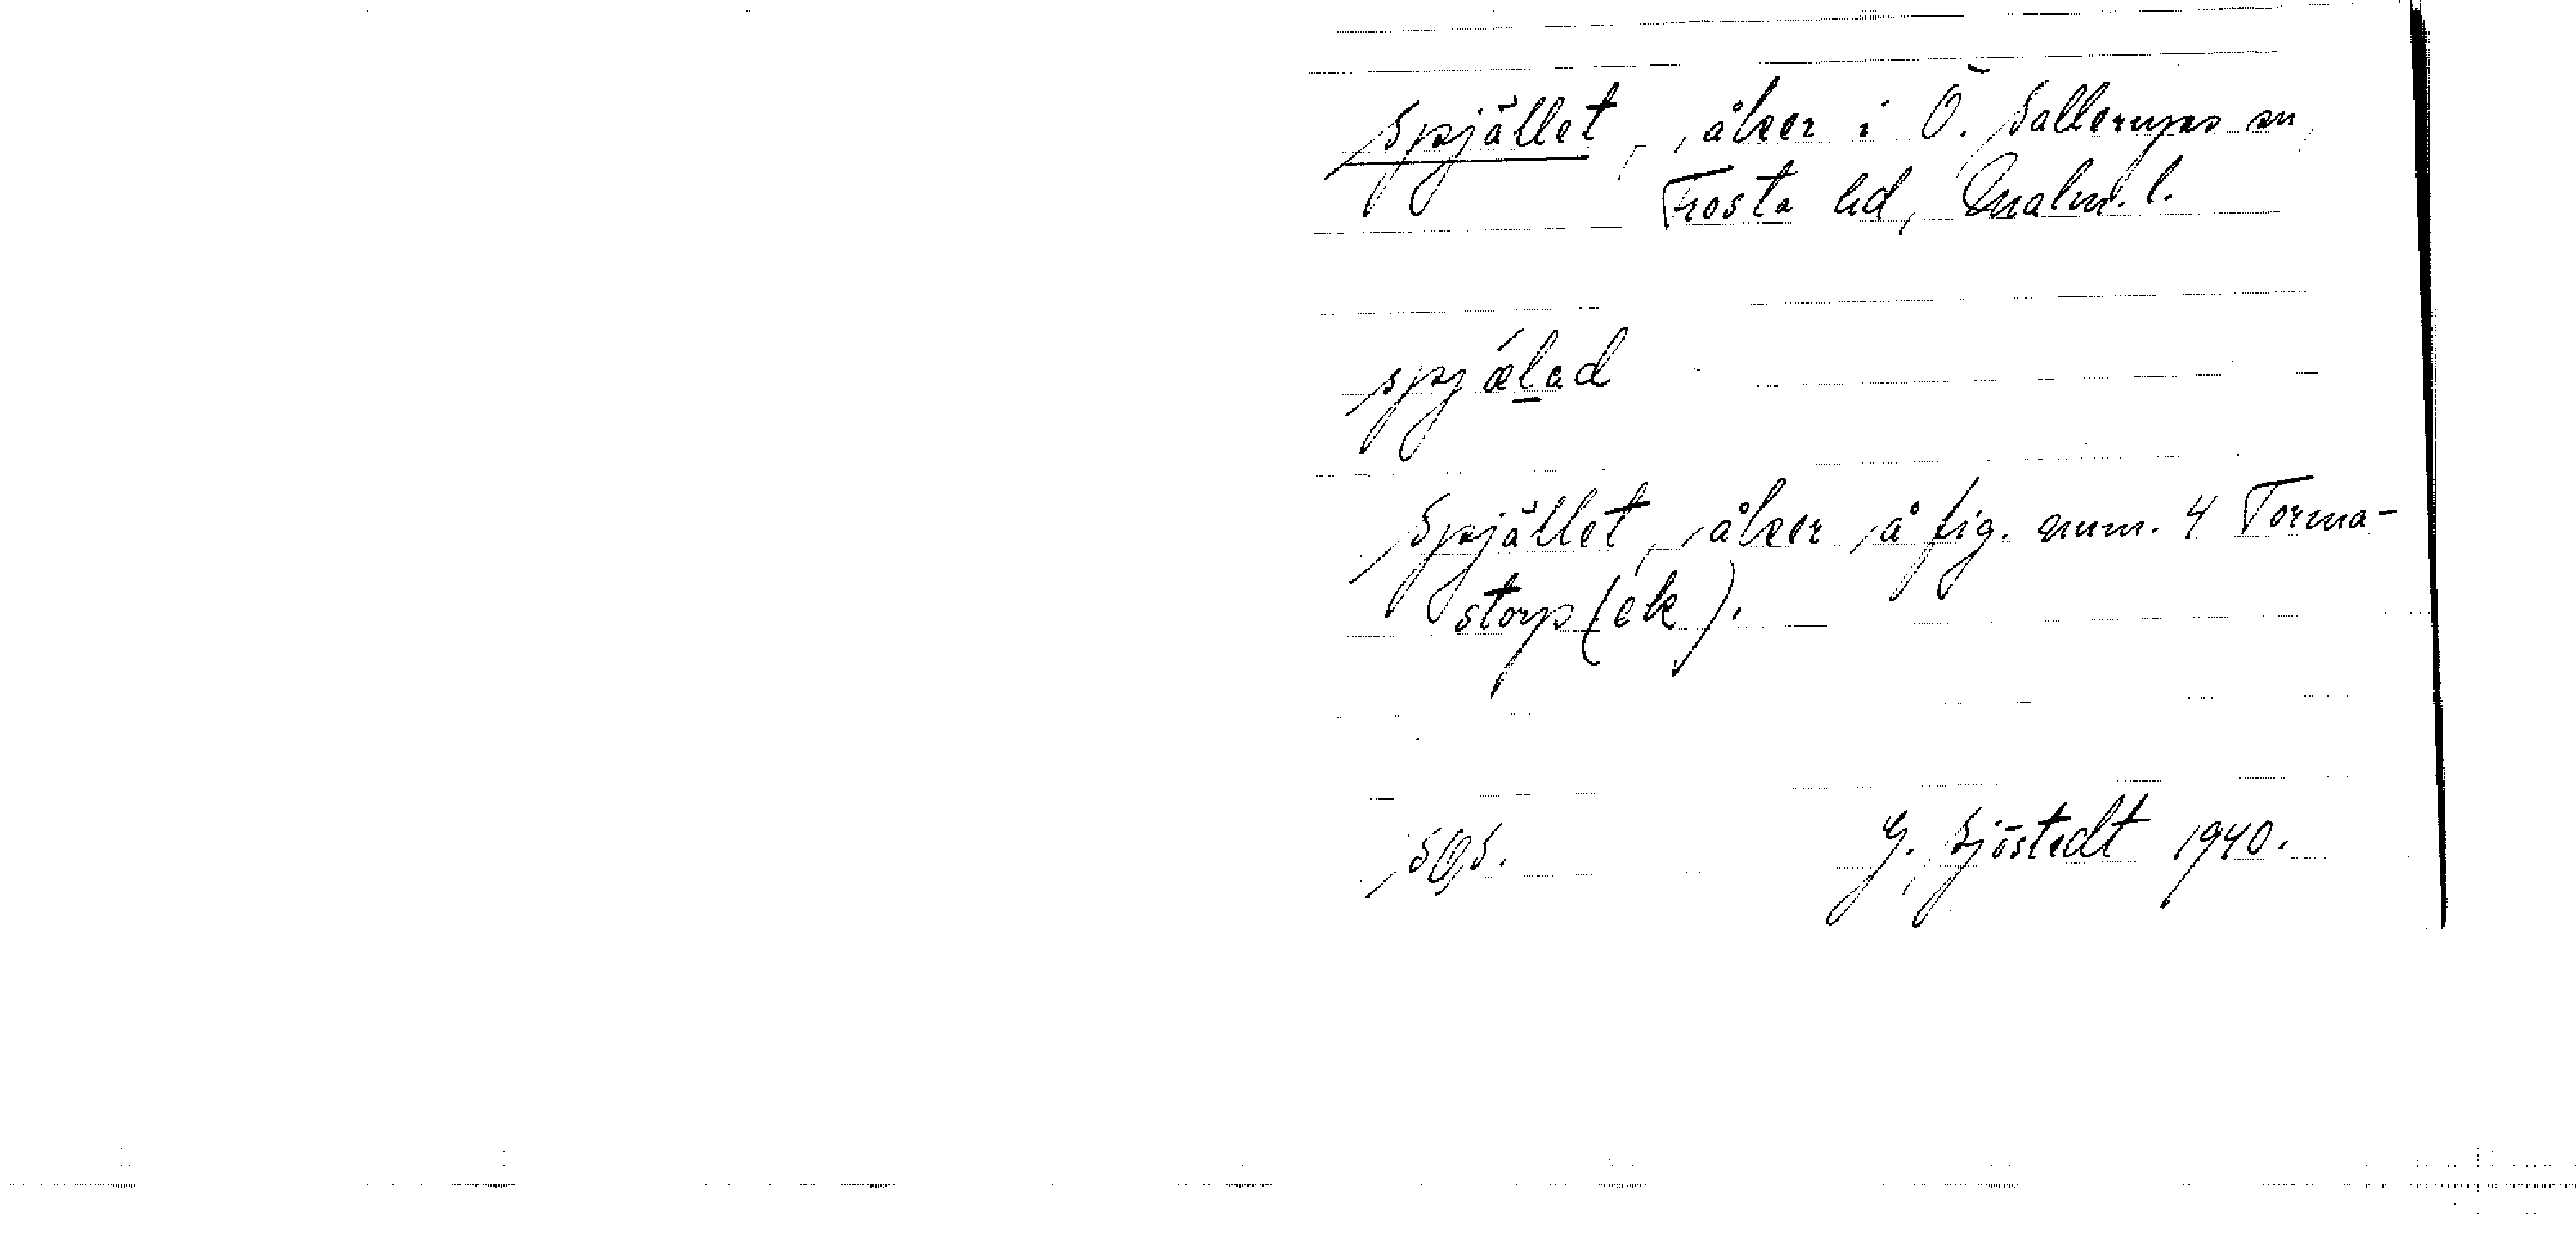 Spjället, åker i Ö. Sallerups sn,
Frosta hd, Malm. l.
spjǽlad
Spjället, åker å fig. num. 4 Torma-
storp (ek).
G. Sjöstedt 1940.